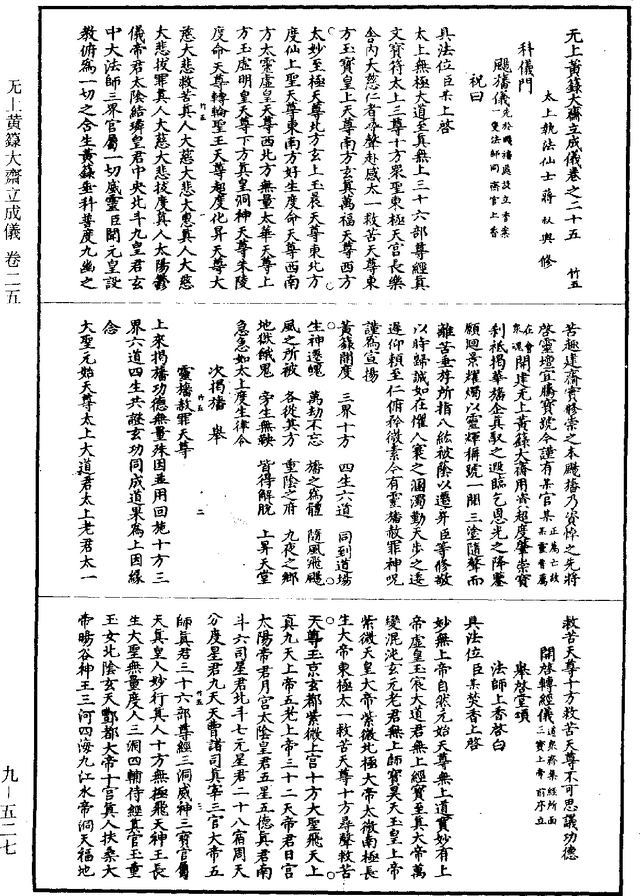 无上黃籙大齋立成儀 卷二五
九－五二七
无上黃籙大齋立成儀卷之二十五 竹五
太上執法仙士蔣叔輿修
科儀門
颺旛儀先於颺旛處設立香案一變法師同齋官上香
祝曰
具法位臣某上啓
太上無極大道至真無上三十六部尊經真
文寶符太上三尊十方衆聖東極天宮長樂
舍內大慈仁者尋聲赴感太一救苦天尊東
方玉寶皇上天尊南方玄真萬福天尊西方
太妙至極天尊北方玄上玉晨天尊東北方
度仙上聖天尊東南方好生度命天尊西南
方太靈虛皇天尊西北方無量太華天尊上
方玉虛明皇天尊下方真皇洞神天尊朱陵
度命天尊轉輪聖王天尊超度化昇天尊大
慈大悲救苦真人大慈大悲大惠真人大慈
大悲拔罪真人大慈大悲拔度真人太陽鬱
儀帝君太陰結璘皇君中央北斗九皇君玄
中大法師三界官屬一切威靈臣聞元皇設
教俯爲一切之含生黃籙垂科普度九幽之
苦趣建齋責修崇之本颺旛乃資悼之先將
啓靈壇宜勝寶號今謹有某官某正爲亡故某靈普爲
在會衆魂開建无上黃籙大齋用資超度肇崇寶
刹祇揭華旛企真馭之遐臨乞恩光之降鑒
願廻景燿燭以靈輝稱號一聞三塗隨聲而
離苦垂莩所指八紘被蔭以遷昇臣等修敬
以時歸誠如在懼人寰之溷濁勤天步之逶
遲仰賴至仁俯矜微素今有靈旛赦罪神呪
謹爲宣揚
黃籙開度 三界十方 四生六道 同到道場
生神遷魄 萬劫不忘 旛之爲體 隨風飛颺
風之所被 各從其方 重陰之府 九夜之鄉
地獄餓鬼 旁生無鞅 皆得解脫 上昇天堂
急急如太上度生律令
次揭旛 舉
靈旛赦罪天尊
上來揭旛功德無量殊因並用回施十方三
界六道四生共證玄功同成道果爲上因緣
念
大聖元始天尊太上大道君太上老君太一
救苦天尊十方救苦天尊不可思議功德
開啓轉經儀道衆齋集經所面三寶上帝前序立
舉啓堂頌
法師上香啓白
具法位臣某焚香上啓
妙無上帝自然元始天尊無上道寶妙有上
帝虛皇玉宸大道君無上經寶至真大帝萬
變混沌玄元老君無上師寶昊天玉皇上帝
紫微天皇大帝紫微北極大帝太微南極長
生大帝東極太一救苦天尊十方尋聲救苦
天尊玉京玄都紫微上宮十方大聖飛天上
真九天上帝五老上帝三十二天帝君日宮
太陽帝君月宮太陰皇君五星五德真君南
斗六司星君北斗七元星君二十八宿周天
分度星君九天天曹諸司真宰三官大帝五
師真君三十六部尊經三洞威神三寶官屬
天真皇人妙行真人十方無極飛天神王長
生大聖無量度人三洞四輔侍經真官玉童
玉女北陰玄天酆都大帝十宮真人扶桑大
帝暘谷神王三河四海九江水帝洞天福地